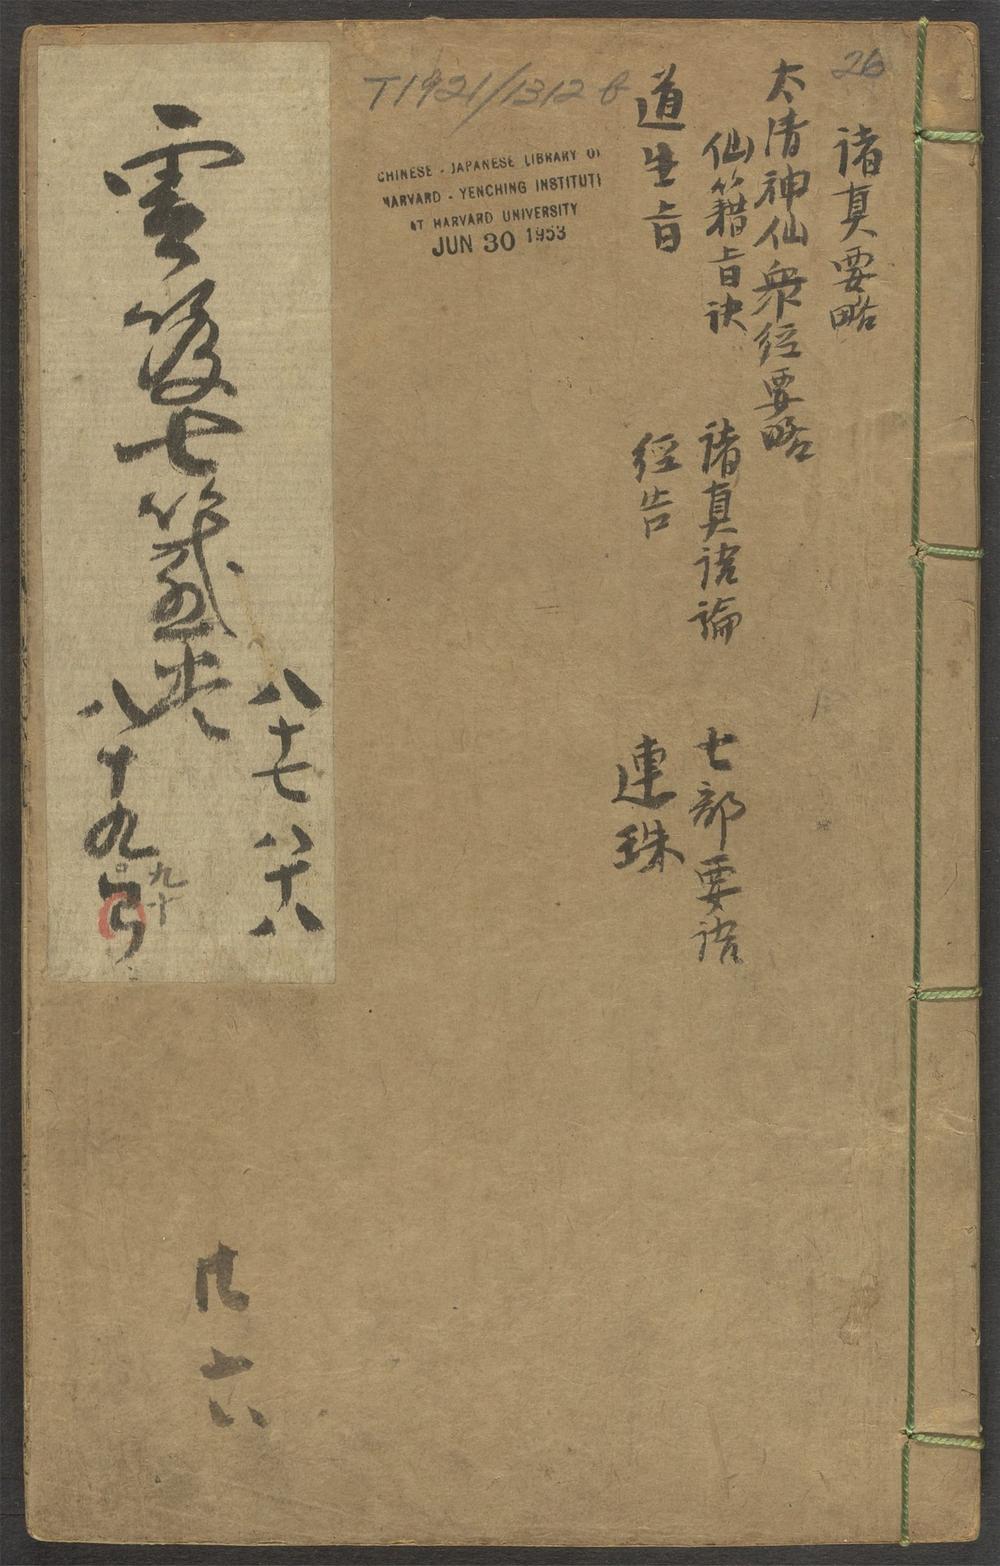 26
諸真要略
太清神仙衆經要略
仙籍旨訣
諸真語論
七部要語
道生旨
經告
連珠
T1921/1312 b
CHINESE - JAPANESE LIBRARY OF
HARVARD - YENCHING INSTITUTE
AT HARVARD UNIVERSITY
JUN 30 1953
雲笈七籤
八十七
八十八
八十九
九十
六